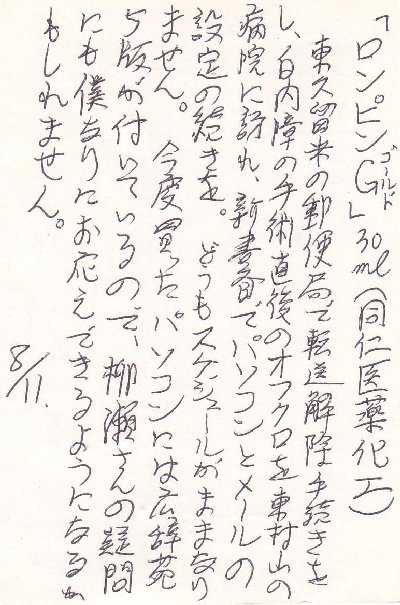 「ロンピンGゴールド」30ml(同仁医薬化工)
東久留米の郵便局で転送解除手続きを
し、白内障の手術直後のオフクロを東村山の
病院に訪れ、新書斎でパソコンとメールの
設定の続きを。 どうもスケジュールがままなり
ません。 今度買ったパソコンには広辞苑
5版が付いているので、柳瀬さんの疑問
にも僕なりにお応えできるようになるか
もしれません。
8/11.